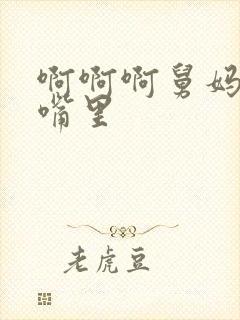 啊啊啊舅妈
嘴里
老虎豆